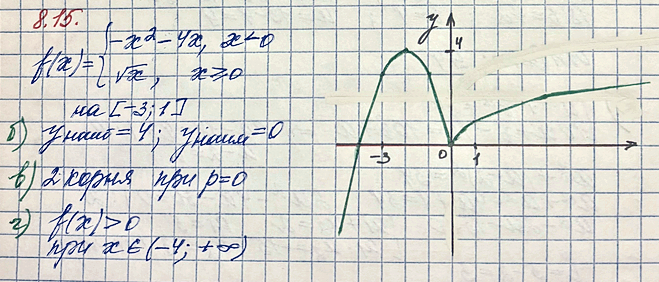 8.15.
f(x) = { -x² - 4x, x < 0
√x, x ≥ 0
на [-3; 1]
б) yнаиб = 4; yнаим = 0
в) 2 корня при p = 0
г) f(x) > 0
при x ∈ (-4; +∞)
y
4
-3 0 1